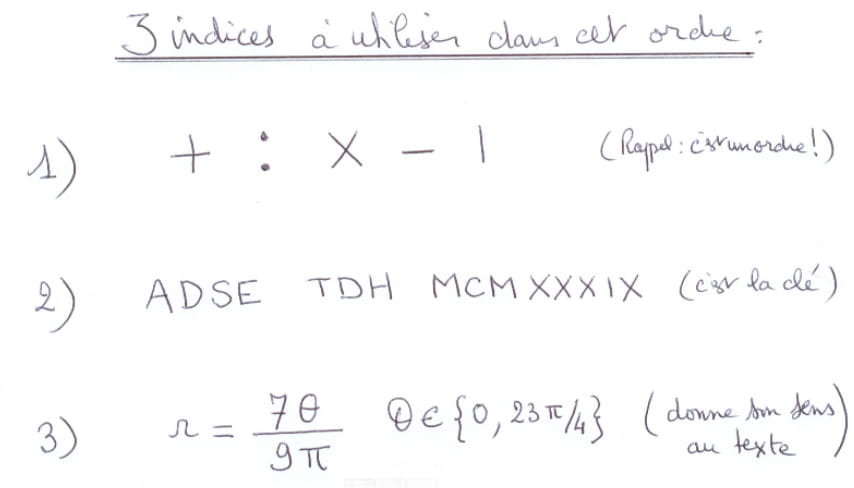 3 indices à utiliser dans cet ordre :
1) + : X - | (Rappel : c'est un ordre !)
2) ADSE TDH MCMXXXIX (c'est la clé)
3) r = 7θ / 9π θ ∈ {0, 23π/4} (donne son sens au texte)